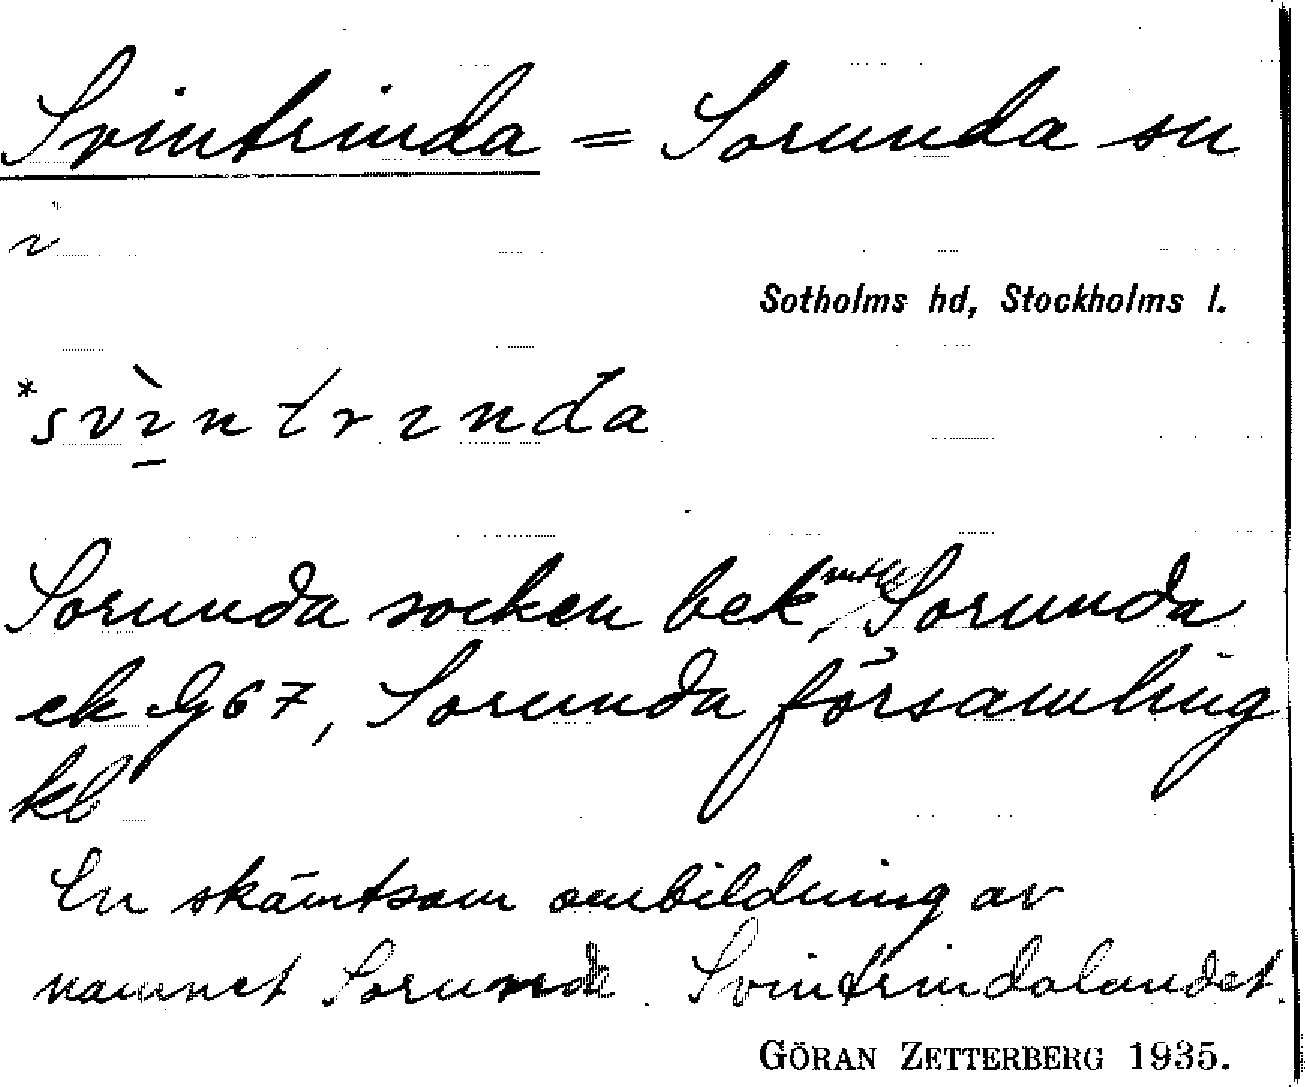 Svintrinda = Sorunda sn
Sotholms hd, Stockholms l.
*svìntrında
Sorunda socken bek, Sorunda
ek G 67, Sorunda församling
kb
En skämtsam ombildning av
namnet Sorunda. Svintrindalandet.
GÖRAN ZETTERBERG 1935.